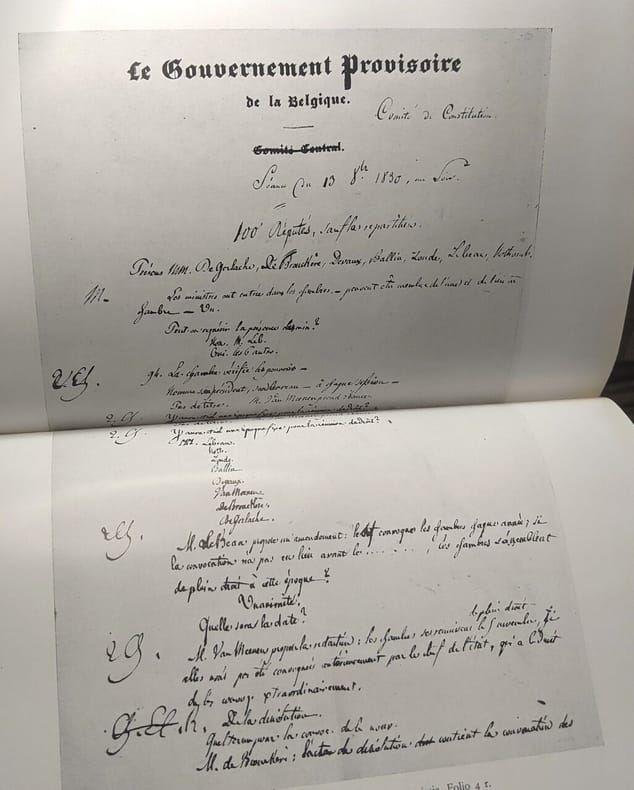 Le Gouvernement Provisoire
de la Belgique.
Comité de Constitution.
Comité Central.
Séance du 13 8bre 1830, au soir.
100 Députés, sauf la répartition.
Présens MM. De Gerlache, De Brouckère, Devaux, Ballin, Zoude, Lebeau, Nothomb.
M. Les ministres ont entrée dans les chambres - peuvent être membre de l'une et de l'autre
chambre - Un.
Peut-on requérir la présence des min.?
Non. M. Leb.
Oui. les 6 autres.
2 Ch. 9h. La chambre vérifie les pouvoirs -
Nomme son président, son bureau - à chaque session -
Pas de titre. M. Van Meenen prend séance.
2. Ch.
2. Ch. Y aura-t-il une époque fixe pour la réunion de droit?
Lebeau
Noth.
Zoude.
Ballin
Devaux.
Van Meenen
De Brouckère.
De Gerlache.
2 Ch. M. Lebeau propose un amendement: convoque les chambres chaque année; si
la convocation n'a pas eu lieu avant le ........, les chambres s'assemblent
de plein droit à cette époque?
Unanimité.
Quelle sera la date?
de plein droit
2 Ch. M. Van Meenen propose la rédaction: les chambres se réunissent le novembre, si
elles n'ont pas été convoquées antérieurement par le chef de l'état, qui a le droit
de les convoq. extraordinairement.
Ch. Et. De la dissolution.
Quel terme pour la convoc. de la nouv.
M. de Brouckère: l'acte de dissolution contient la convocation des
Folio 4 r.